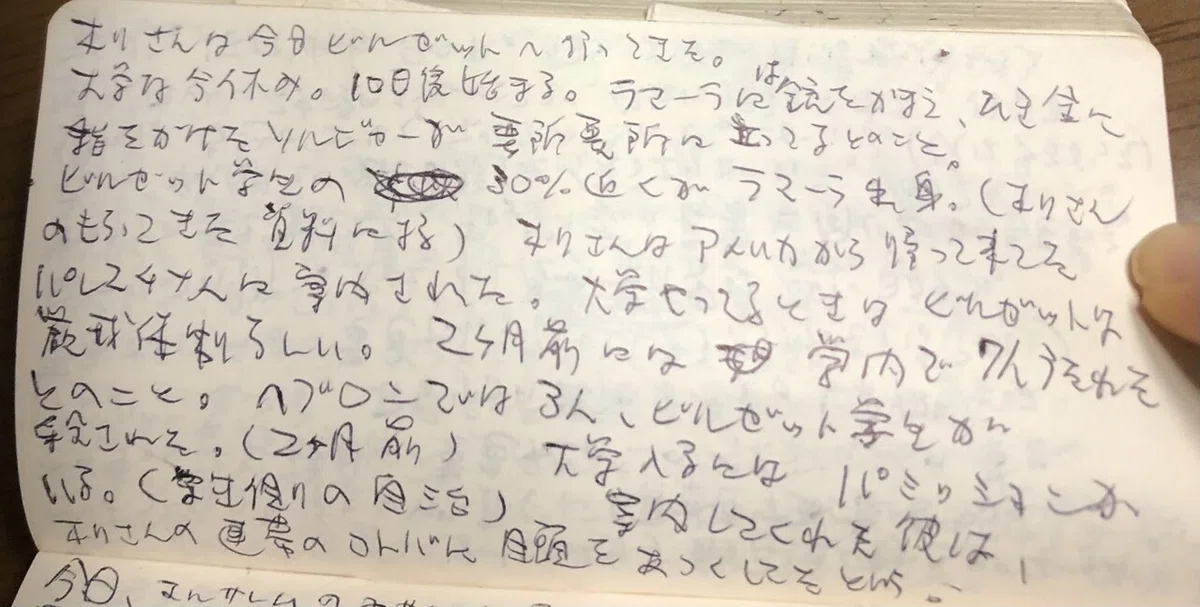 本りさんは今日ビルゼットへ行ってきた。
大学は今休み。10日後始まる。ラマーラには銃をかまえ、ひき金に
指をかけたソルジャーが要所要所に立ってるとのこと。
ビルゼット学生の 30%近くがラマーラ出身。(本りさん
のもらってきた資料による) 本りさんはアメリカから帰って来てた
パレスチナ人に案内された。大学やってるときはビルゼットは
厳戒体制らしい。2ヶ月前には 学内で7人うたれた
とのこと。ヘブロンでは3人、ビルゼット学生が
殺された。(2ヶ月前) 大学入るにはパミッションが
いる。(学生側の自治) 案内してくれた彼は、
本りさんの連帯のコトバに目頭をあつくしてたという。
今日、